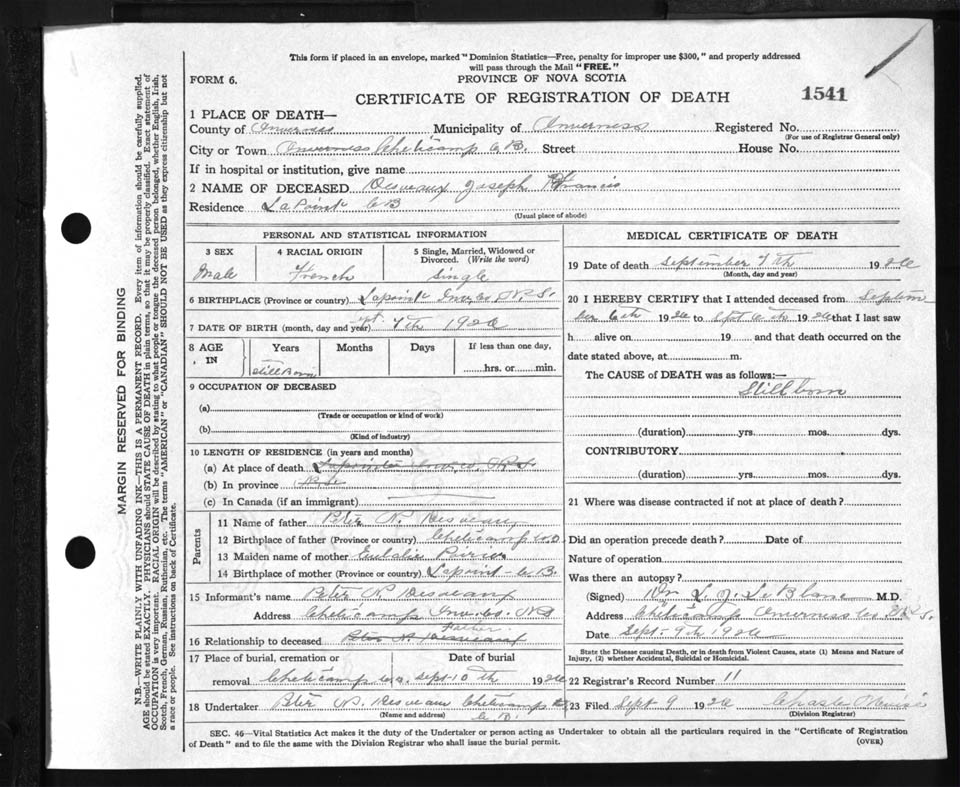 This form if placed in an envelope, marked "Dominion Statistics—Free, penalty for improper use $300," and properly addressed
will pass through the Mail "FREE."
FORM 6.
PROVINCE OF NOVA SCOTIA
CERTIFICATE OF REGISTRATION OF DEATH
1541
1 PLACE OF DEATH—
County of Inverness Municipality of Inverness Registered No.
(For use of Registrar General only)
City or Town Inverness Cheticamp C.B. Street House No.
If in hospital or institution, give name
2 NAME OF DECEASED Desveaux Joseph Francis
Residence LaPointe CB
(Usual place of abode)
PERSONAL AND STATISTICAL INFORMATION
3 SEX 4 RACIAL ORIGIN 5 Single, Married, Widowed or Divorced. (Write the word)
Male French Single
6 BIRTHPLACE (Province or country) Lapointe Inv. Co. N.S.
7 DATE OF BIRTH (month, day and year) Sept. 7th 1926
8 AGE IN Years Months Days If less than one day,
Still Born hrs. or min.
9 OCCUPATION OF DECEASED
(a)
(Trade or occupation or kind of work)
(b)
(Kind of industry)
10 LENGTH OF RESIDENCE (in years and months)
(a) At place of death
(b) In province
(c) In Canada (if an immigrant)
Parents
11 Name of father Peter N. Desveaux
12 Birthplace of father (Province or country) Cheticamp
13 Maiden name of mother Eulalie Poirier
14 Birthplace of mother (Province or country) Lapoint - C.B.
15 Informant's name Peter N Desveaux
Address Cheticamp Inv. Co. NS
Father
16 Relationship to deceased Peter N. Desveaux
17 Place of burial, cremation or removal Date of burial
Cheticamp sept-10th 1926
18 Undertaker Peter N. Desveaux Cheticamp
C.B.
(Name and address)
MEDICAL CERTIFICATE OF DEATH
19 Date of death September 7th 1926
(Month, day and year)
20 I HEREBY CERTIFY that I attended deceased from Septem
ber 6th 1926 to Sept 6th 1926 that I last saw
h alive on 19 and that death occurred on the
date stated above, at m.
The CAUSE of DEATH was as follows:—
Stillborn
(duration) yrs. mos. dys.
CONTRIBUTORY
(duration) yrs. mos. dys.
21 Where was disease contracted if not at place of death?
Did an operation precede death? Date of
Nature of operation
Was there an autopsy?
(Signed) Dr. L. J. LeBlanc M.D.
Address Cheticamp Inverness Co. N.S.
Date Sept-9th 1926
State the Disease causing Death, or in death from Violent Causes, state (1) Means and Nature of
Injury, (2) whether Accidental, Suicidal or Homicidal.
22 Registrar's Record Number 11
23 Filed Sept 9 1926
(Division Registrar)
SEC. 46—Vital Statistics Act makes it the duty of the Undertaker or person acting as Undertaker to obtain all the particulars required in the "Certificate of Registration
of Death" and to file the same with the Division Registrar who shall issue the burial permit.
(OVER)
MARGIN RESERVED FOR BINDING
N.B.—WRITE PLAINLY WITH UNFADING INK—THIS IS A PERMANENT RECORD. Every item of information should be carefully supplied.
AGE should be stated EXACTLY. PHYSICIANS should STATE CAUSE OF DEATH in plain terms, so that it may be properly classified. Exact statement of
OCCUPATION is very important. RACIAL ORIGIN will be described by stating to what people or tongue the deceased person belonged, whether English, Irish,
Scotch, French, German, Russian, Ruthenian, etc. The terms "AMERICAN" or "CANADIAN" SHOULD NOT BE USED as they express citizenship but not
a race or people. See instructions on back of Certificate.